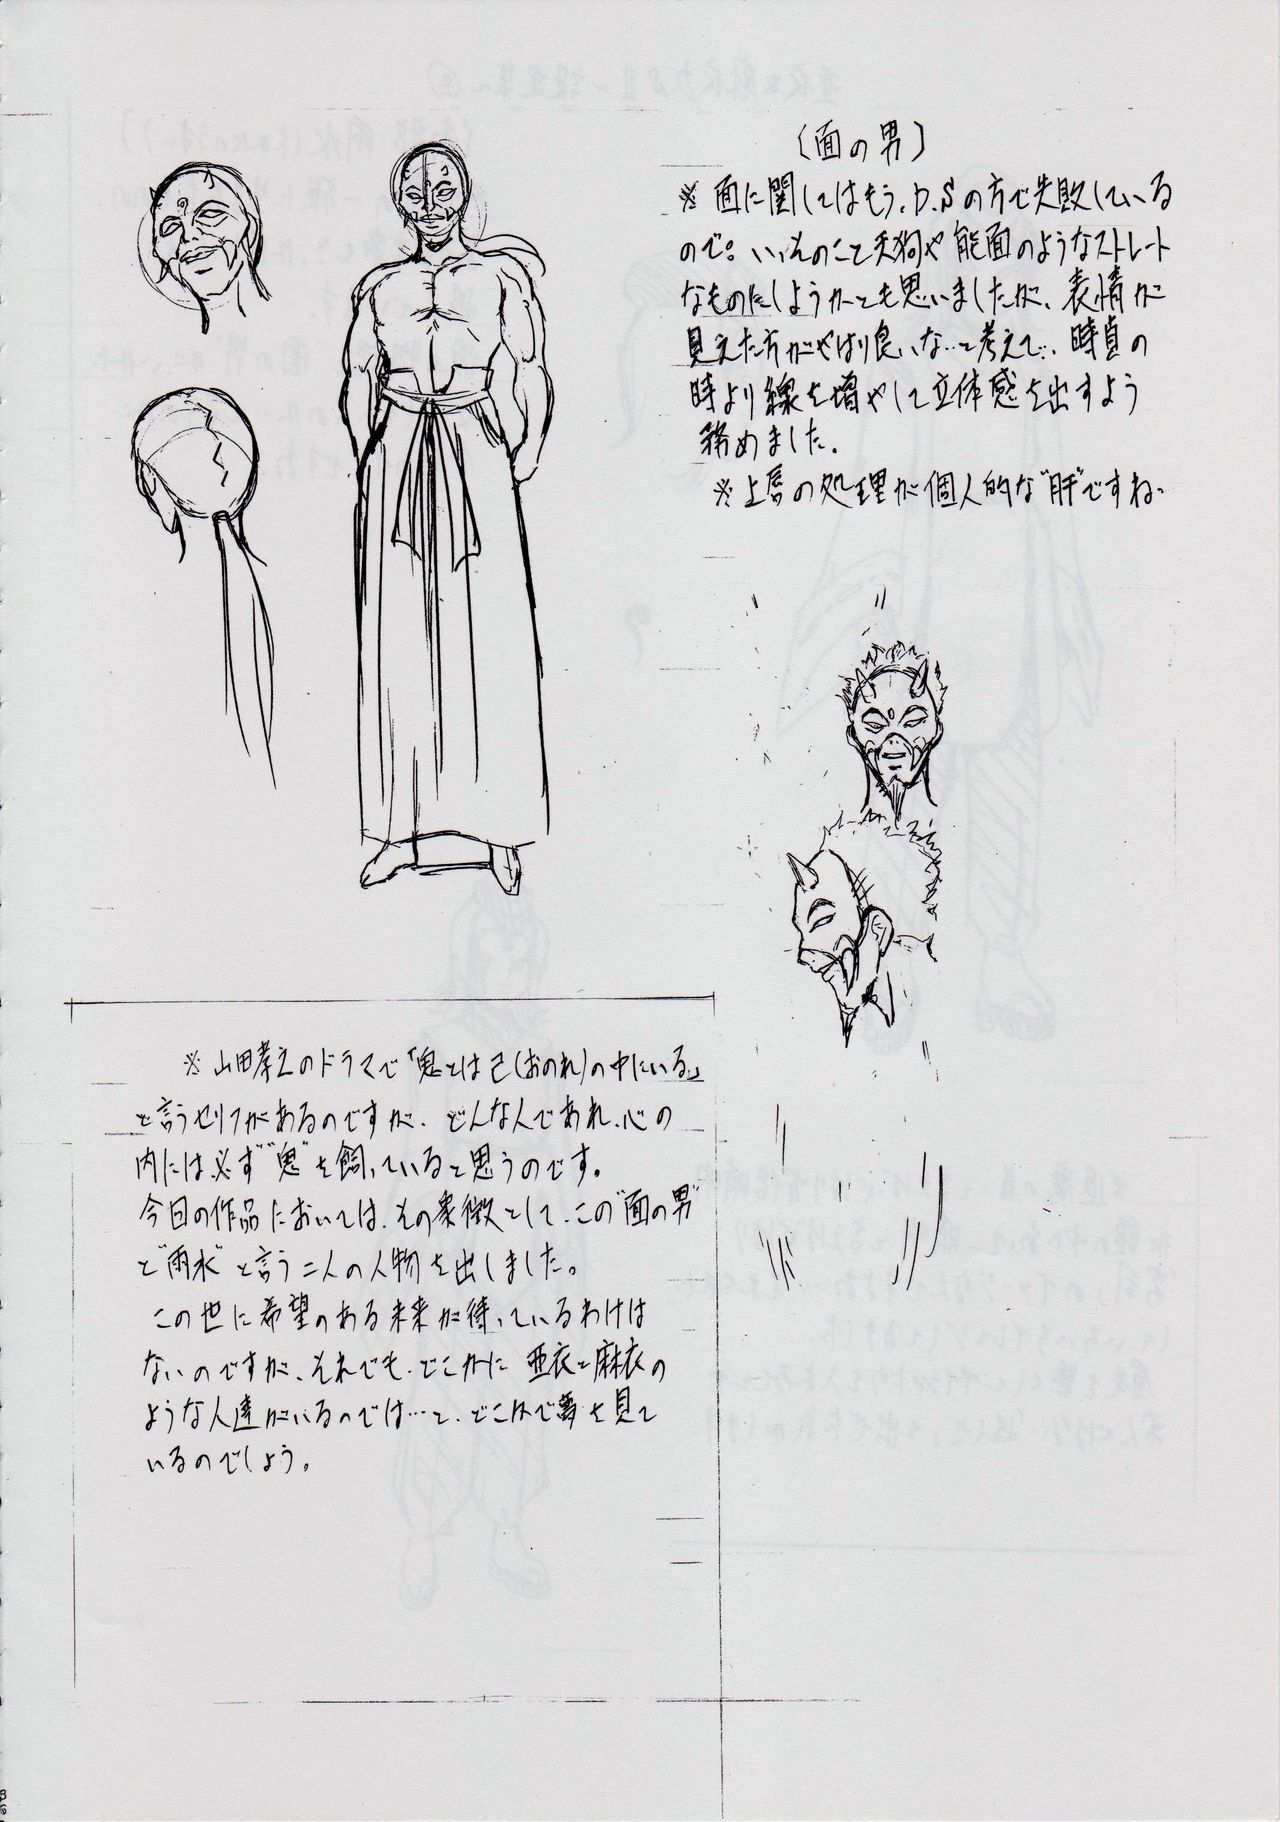 （面の男）
※ 面に関してはもう、D.Sの方で失敗している
ので。いっそのこと天狗や能面のようなストレート
なものにしようかとも思いましたが、表情が
見えた方がやはり良いな…と考えて、時貞の
時より線を増やして立体感を出すよう
務めました。
※上唇の処理が個人的な"肝"ですね。
※ 山田孝之のドラマで「鬼とは己(おのれ)の中にいる」
と言うセリフがあるのですが、どんな人であれ、心の
内には必ず"鬼"を飼っていると思うのです。
今回の作品においては、その象徴として、この"面の男"
と"雨水"と言う二人の人物を出しました。
この世に希望のある未来が待っているわけは
ないのですが、それでも、どこかに亜衣と麻衣の
ような人達がいるのでは…と、どこかで夢を見て
いるのでしょう。